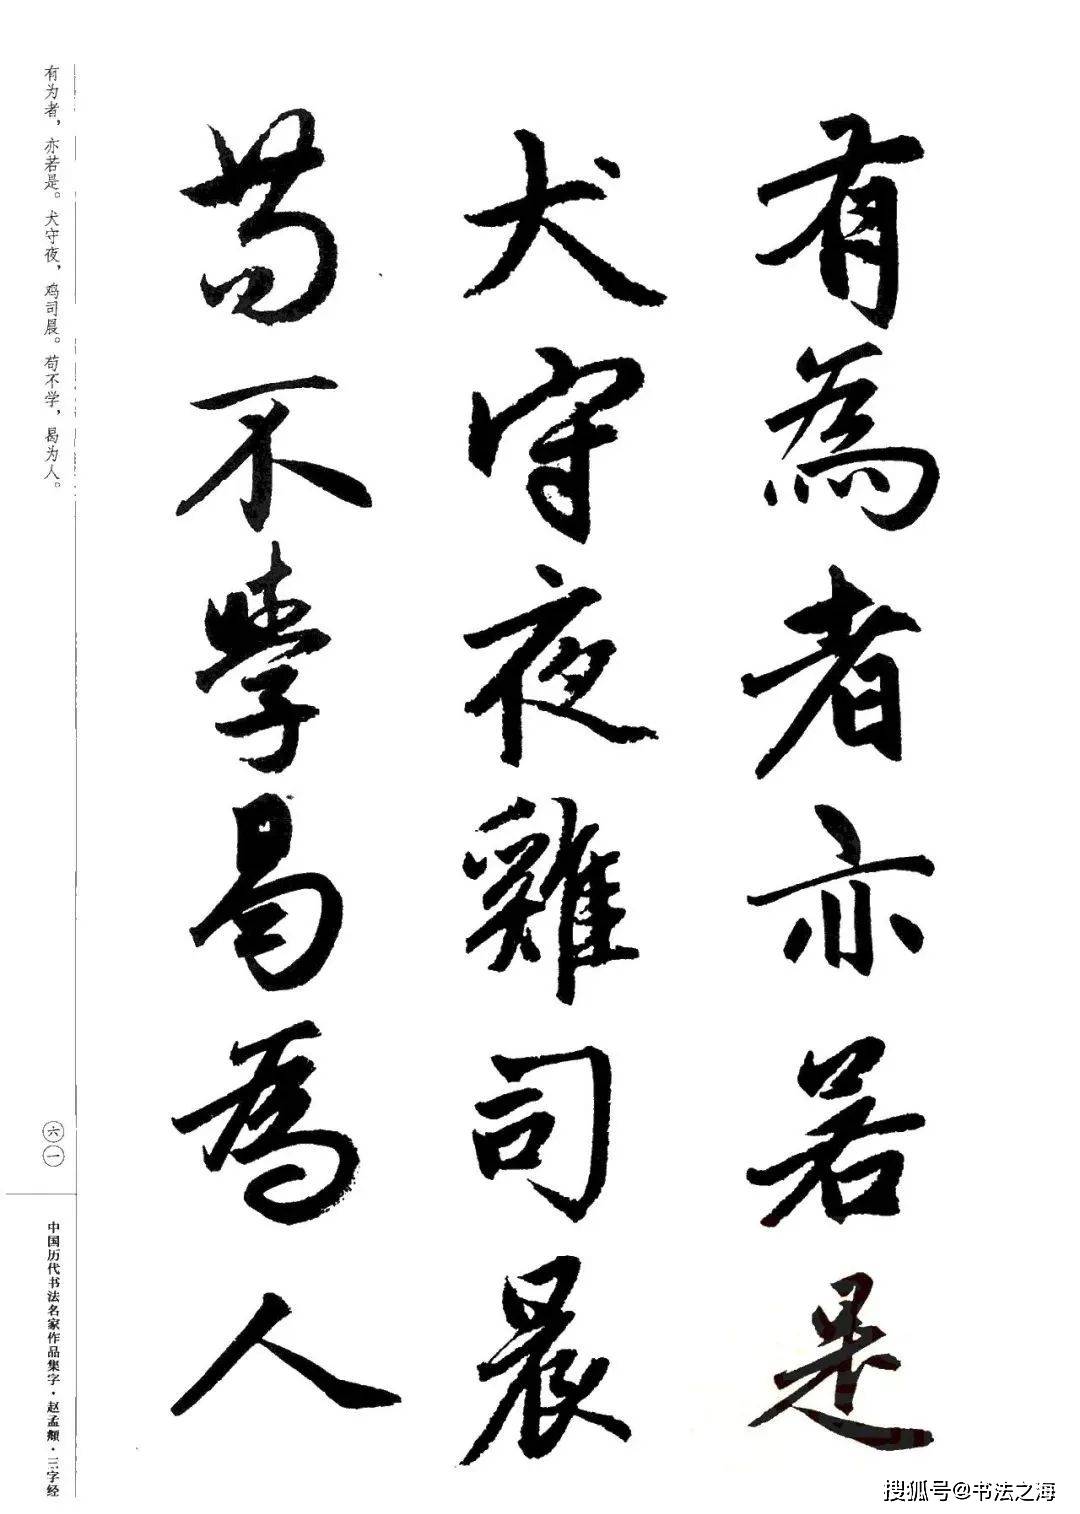 有為者亦若是
犬守夜雞司晨
苟不學曷為人
有为者，亦若是。犬守夜，鸡司晨。苟不学，曷为人。
六一
中国历代书法名家作品集字·赵孟頫·三字经
搜狐号@书法之海